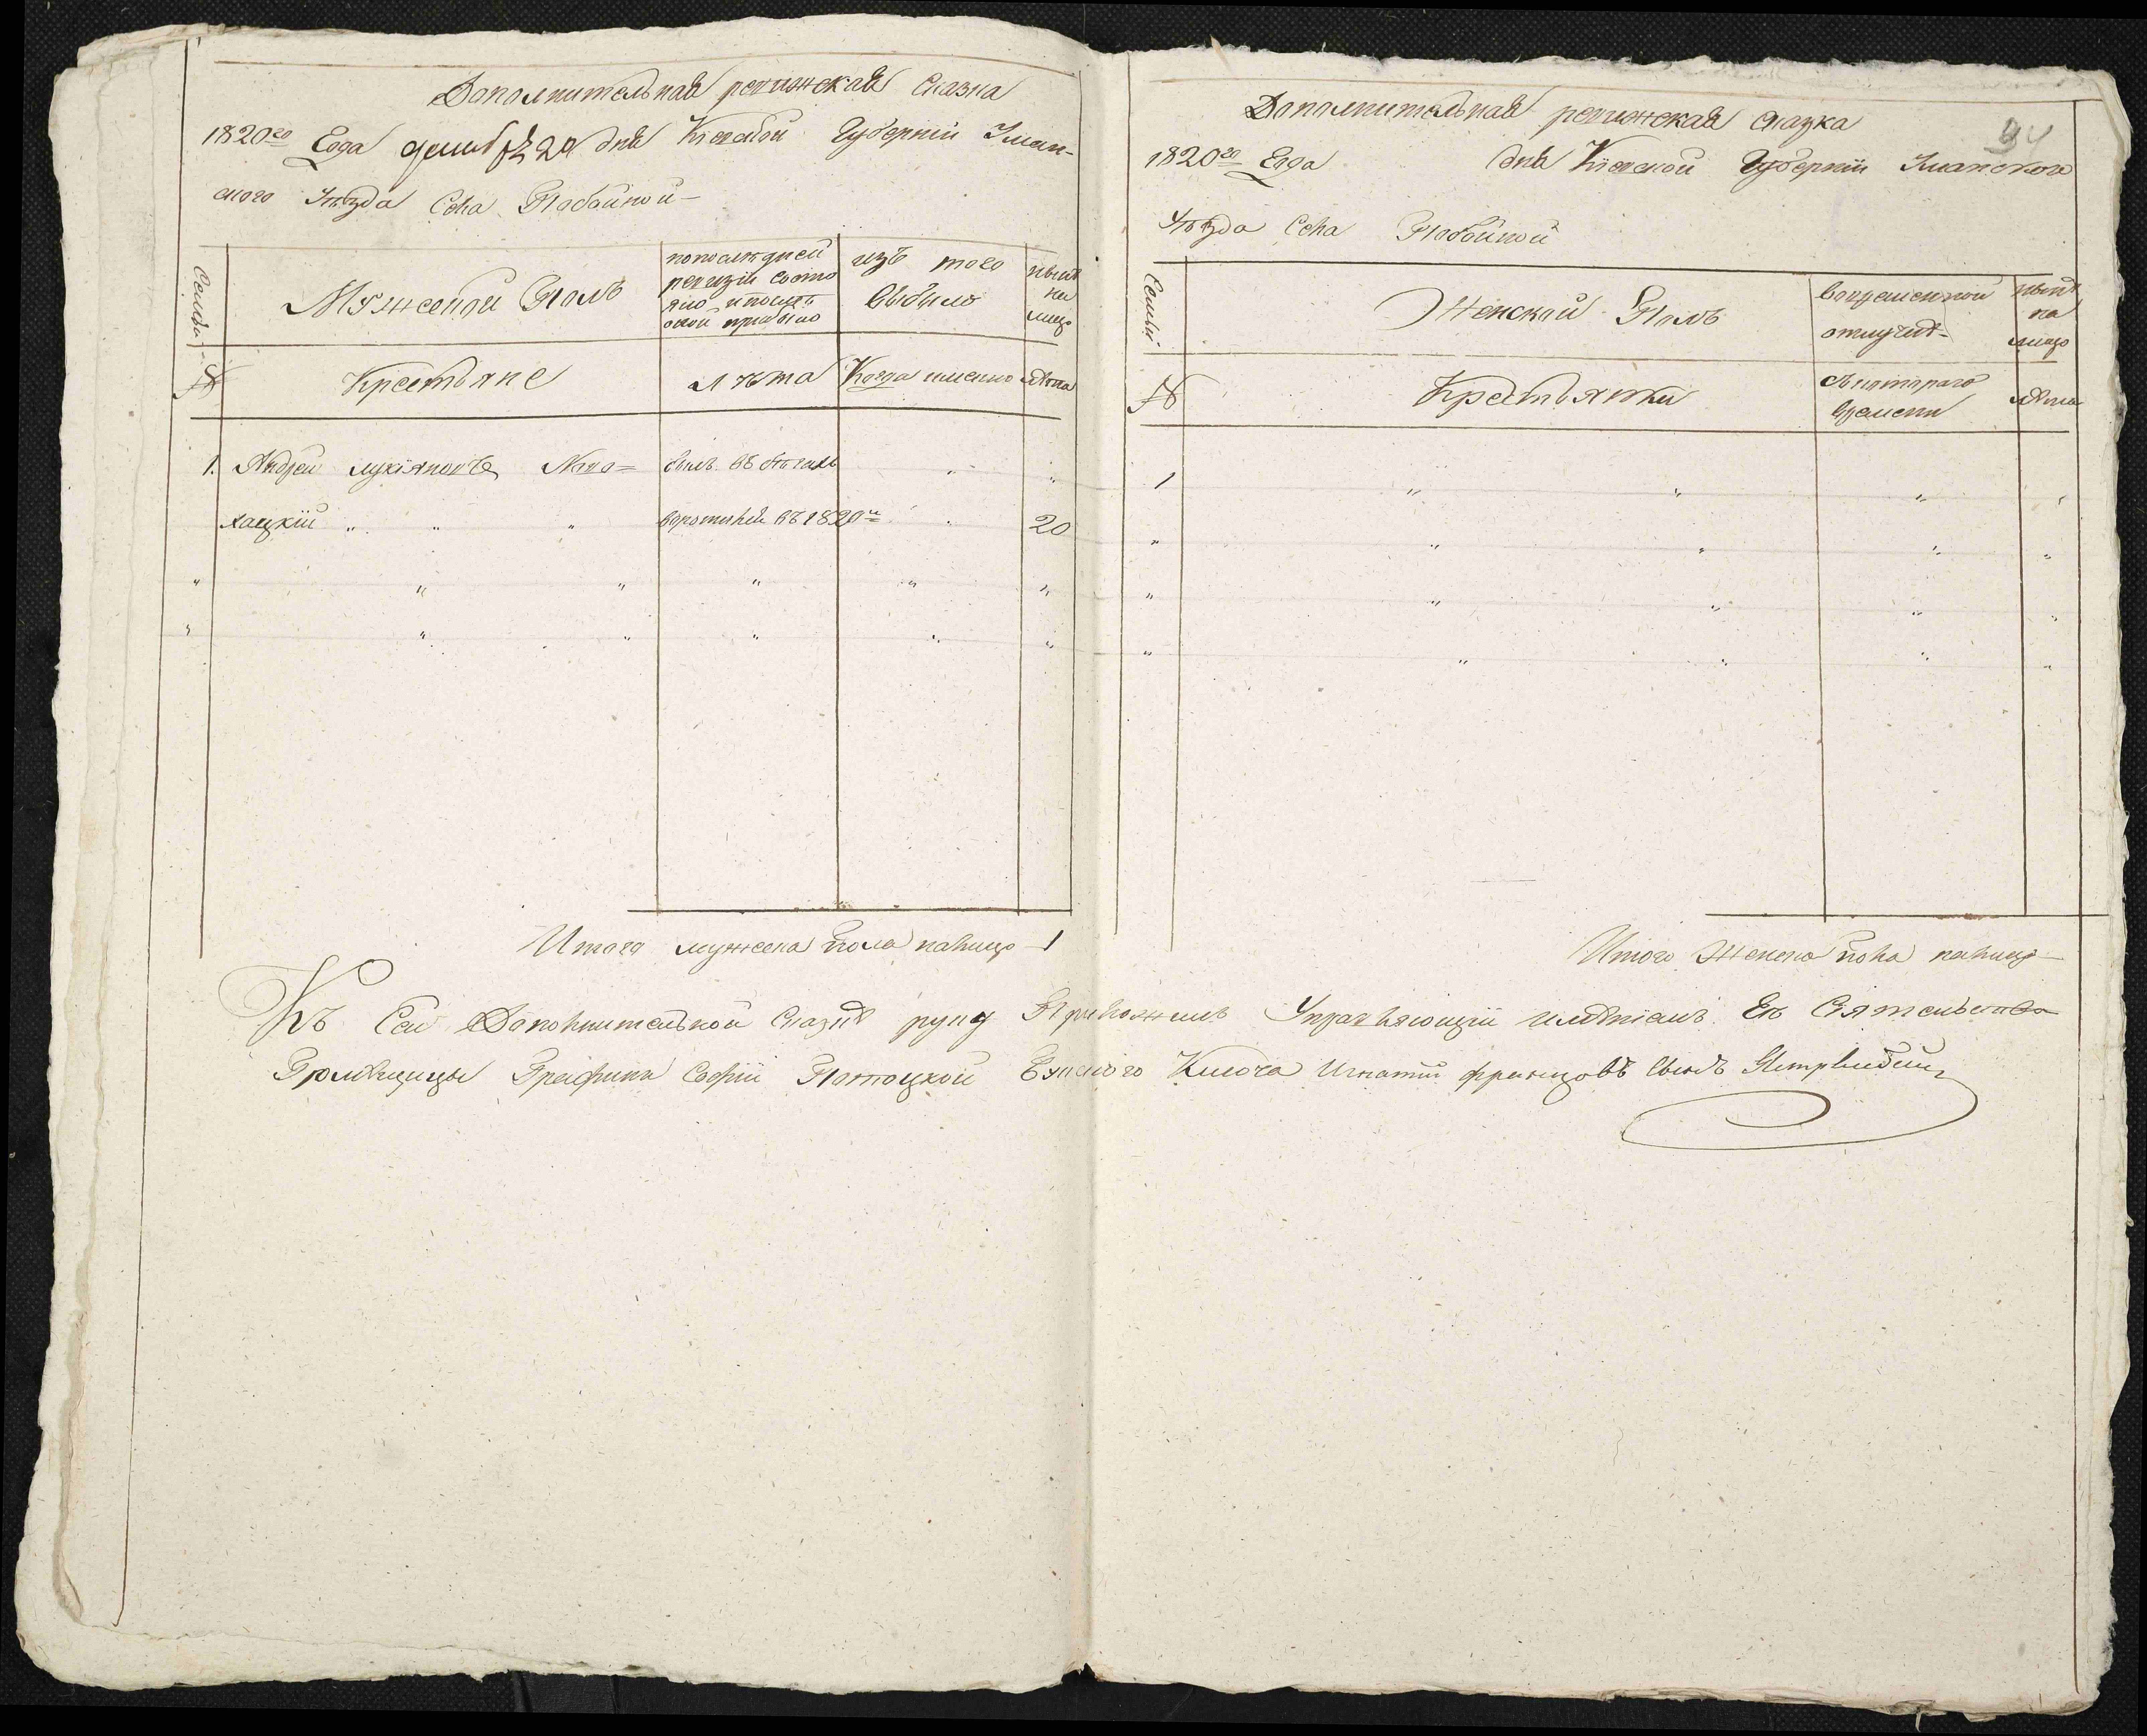 Дополнительная ревижская Сказка
1820го Года декабря 20 дня Киевской Губернии Уман-
ского Уезда Села Побойной
Семьи
Мужеской Полъ
попоследней
ревизіи состо
яло и после
оной прибыло
изъ того
выбыло
ныне
на
лицо
№
Крестьяне
лѣта
Когда именно
лѣта
1. Андрей Лукіяновъ
былъ въ бегахъ
" "
хацкій " " "
воротился въ 1820м
"
20
" " " " " "
" " " " " "
Итого мужеска пола налицо 1
94
Дополнительная ревижская сказка
1820го Года дня Кіевской Губерніи Уманского
Уѣзда Села Побойной
Семьи
Женской Полъ
вовременной
отлучке
ныне
на
лицо
№
Крестьянки
съ котораго
времени
лѣта
1 " " " "
" " " " "
" " " " "
" " " " "
Итого Женска пола налицо
Къ Сей Дополнительной Сказке руку Приложилъ Управляющій имѣніемъ Ея Сіятельства
Помѣщицы Графини Софіи Потоцкой Ключа Игнатій Францовъ Сынъ